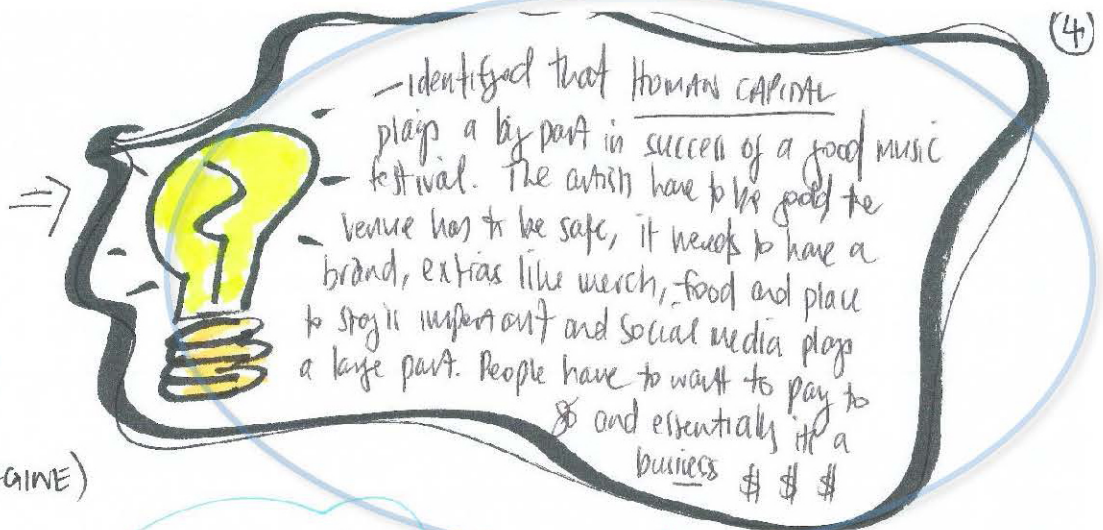 (4)
- Identified that HUMAN CAPITAL
plays a big part in success of a good music
festival. The artists have to be good the
venue has to be safe, it needs to have a
brand, extras like merch, food and place
to stay is important and social media plays
a large part. People have to want to pay to
and essentially it's a
business $ $ $
GINE)